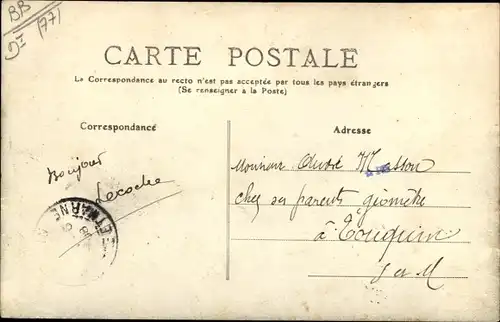 BB
(77)
CARTE POSTALE
La Correspondance au recto n'est pas acceptée par tous les pays étrangers
(Se renseigner à la Poste)
Correspondance
Adresse
Bonjour
Lecoche
ET MARNE
Monsieur André Masson
chez ses parents géomètre
à Touquin
S et M